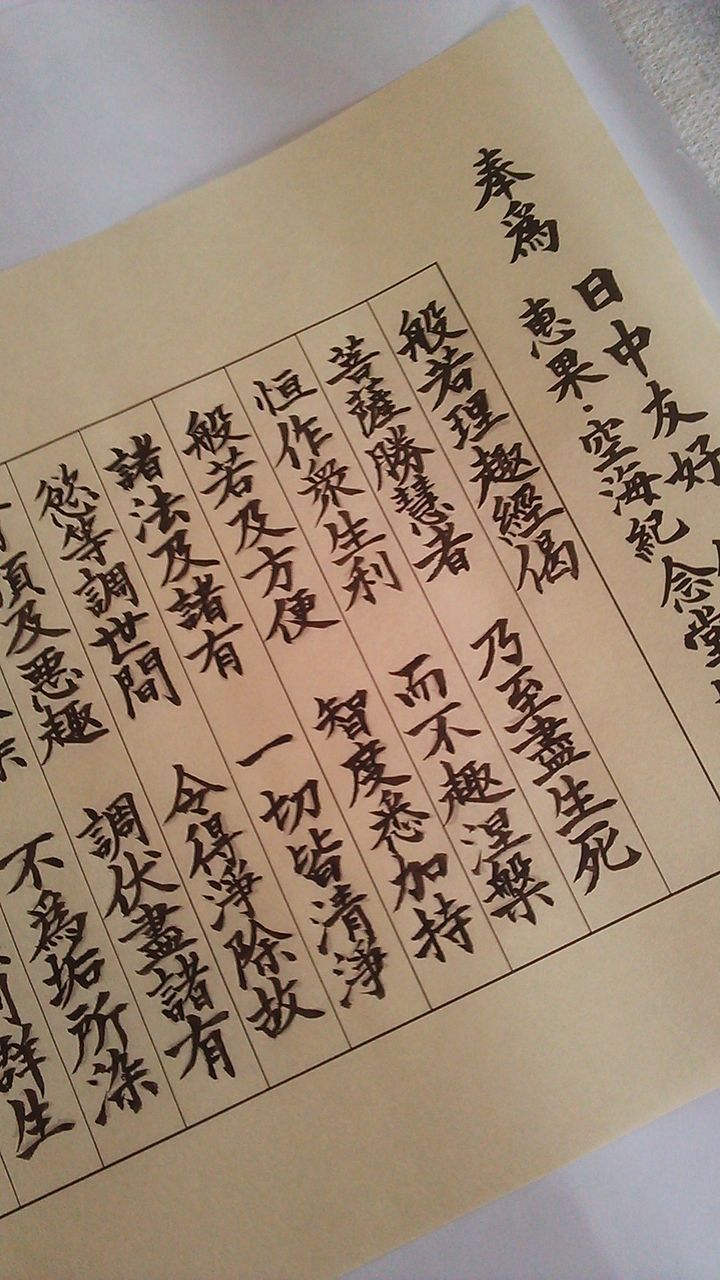 奉為
日中友好
恵果・空海紀念堂
般若理趣經偈
菩薩勝慧者　乃至盡生死
恒作衆生利　而不趣涅槃
般若及方便　智度悉加持
諸法及諸有　一切皆清淨
慾等調世間　令得淨除故
頂及悪趣　調伏盡諸有
不為垢所染
群生